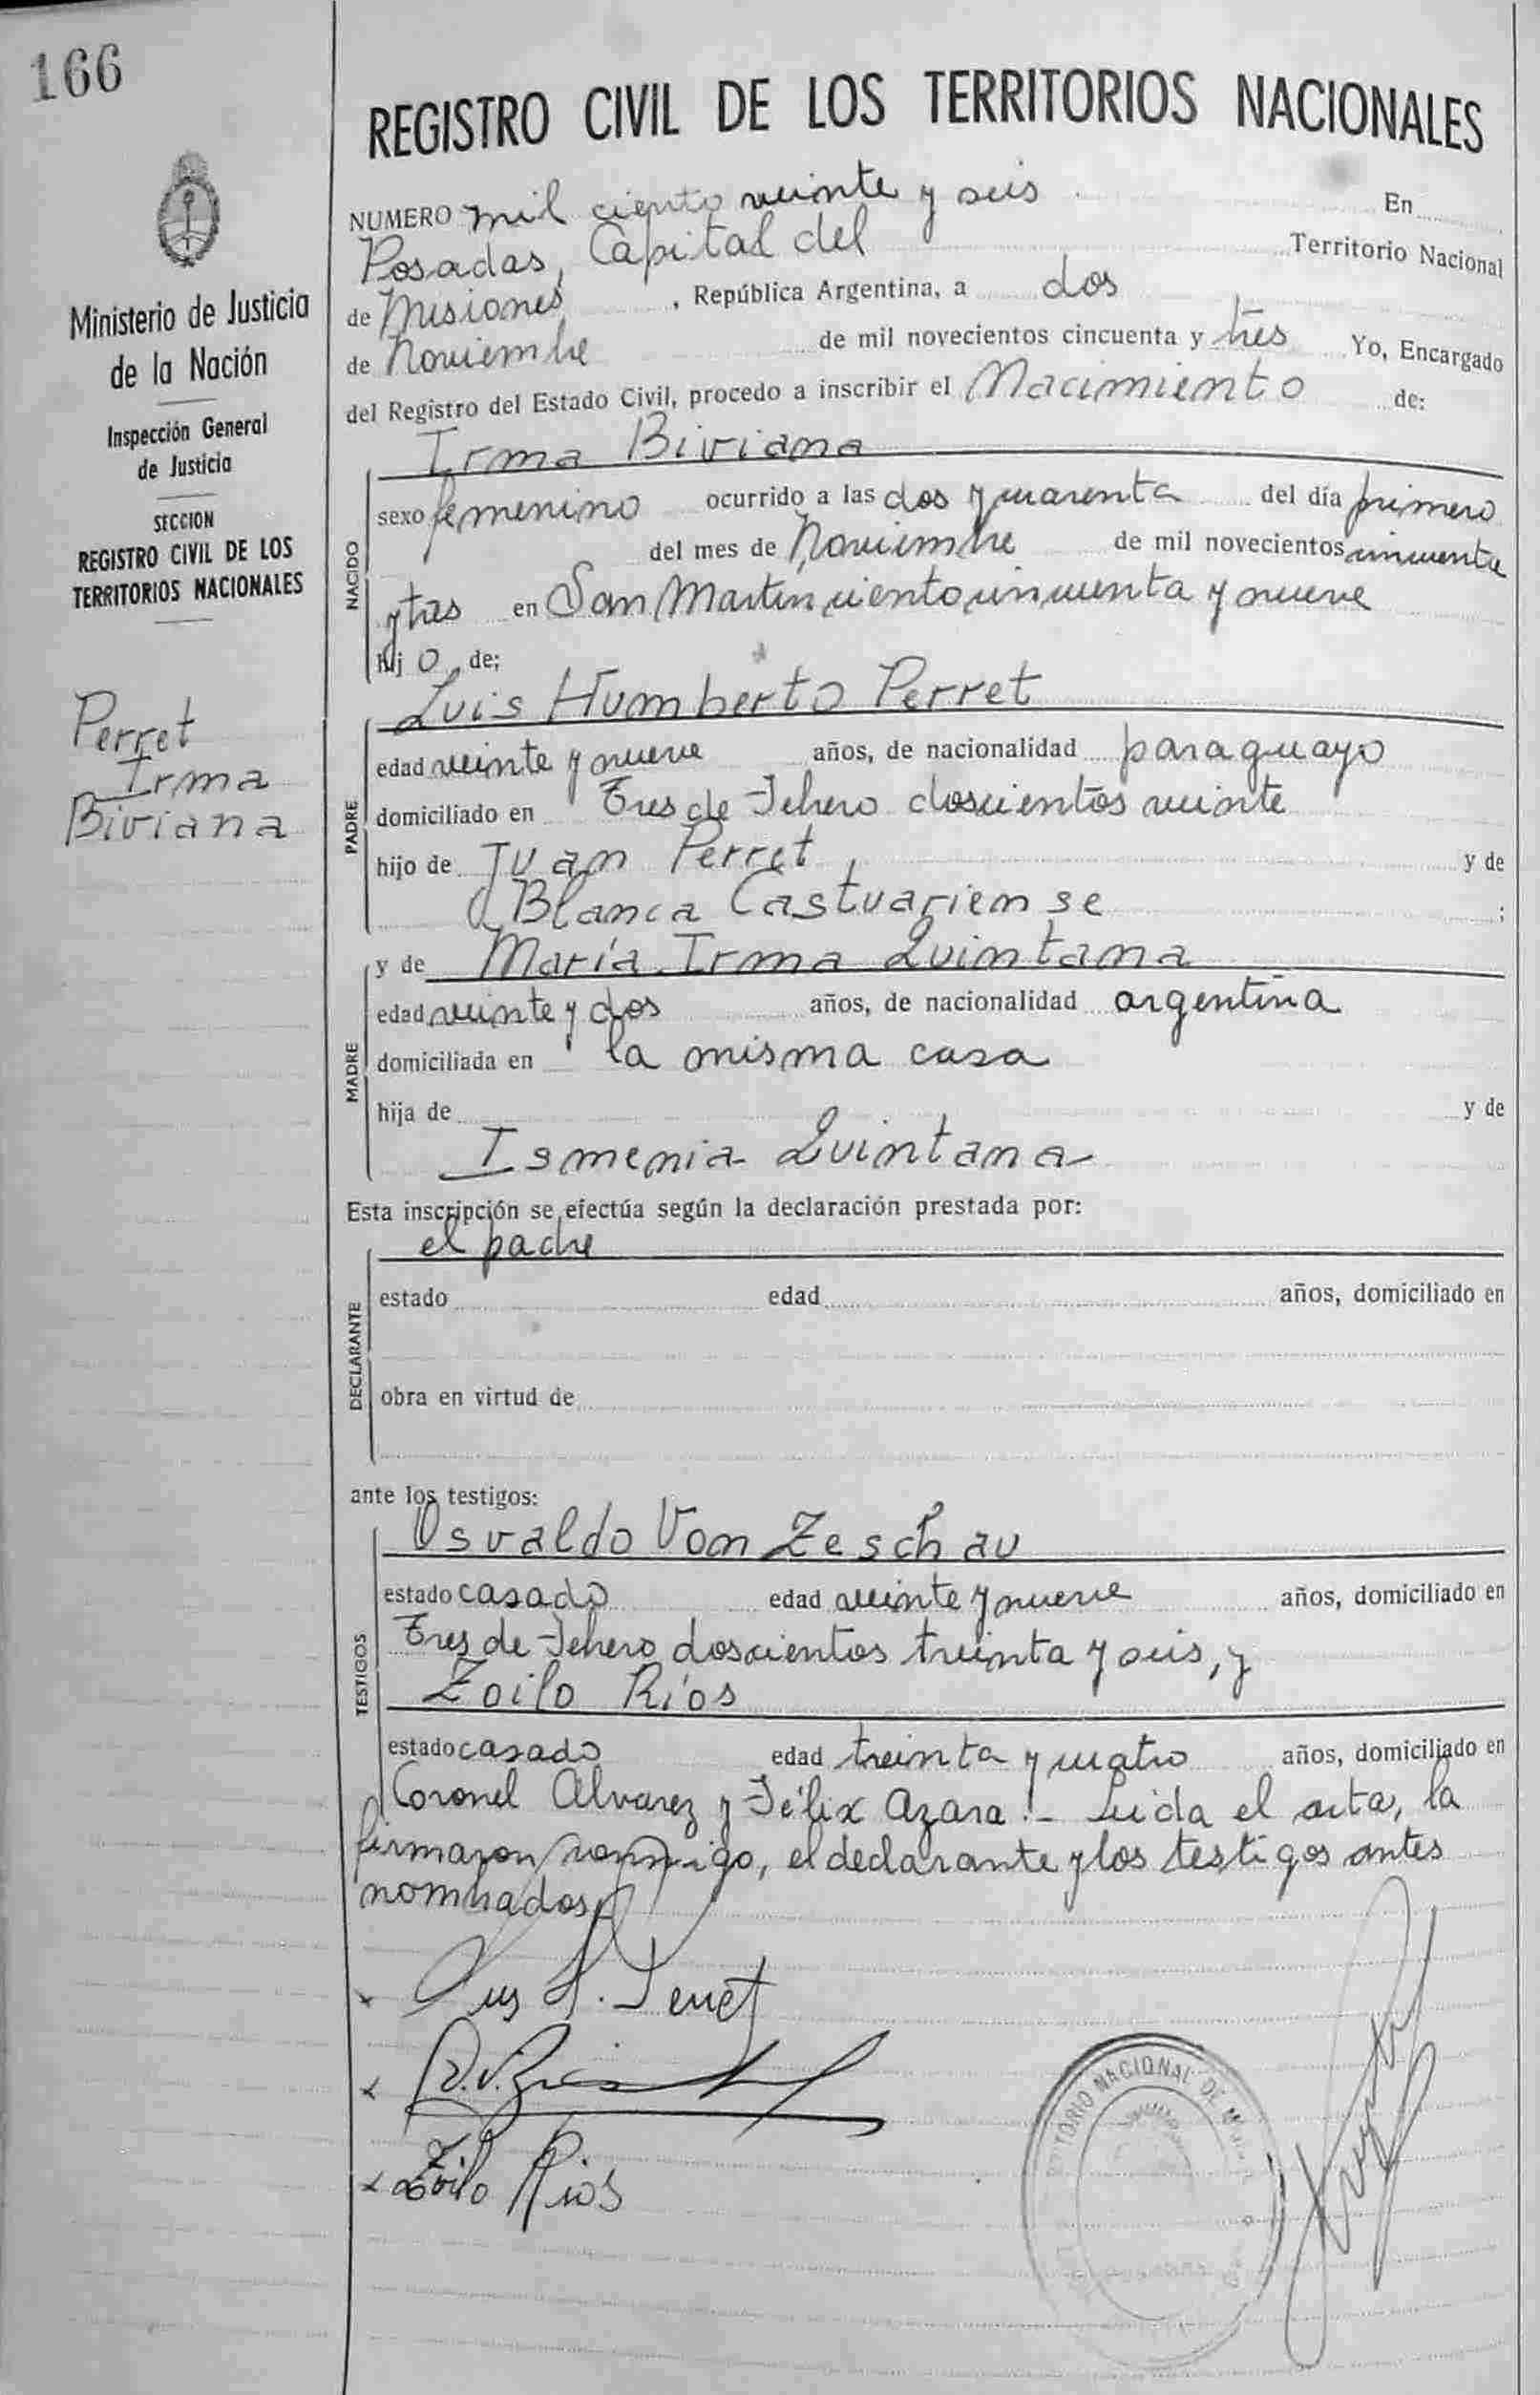 166
REGISTRO CIVIL DE LOS TERRITORIOS NACIONALES
Ministerio de Justicia
de la Nación
Inspección General
de Justicia
SECCION
REGISTRO CIVIL DE LOS
TERRITORIOS NACIONALES
Perret
Irma
Biviana
NUMERO mil ciento veinte y seis En
Posadas, Capital del Territorio Nacional
de Misiones, República Argentina, a dos
de Noviembre de mil novecientos cincuenta y tres Yo, Encargado
del Registro del Estado Civil, procedo a inscribir el Nacimiento de:
Irma Biviana
NACIDO
sexo femenino ocurrido a las dos y cuarenta del día primero
del mes de Noviembre de mil novecientos cincuenta
y tres en San Martín ciento cincuenta y nueve
hij o de;
Luis Humberto Perret
PADRE
edad veinte y nueve años, de nacionalidad paraguayo
domiciliado en Tres de Febrero doscientos veinte
hijo de Juan Perret y de
Blanca Castuariense ;
y de María Irma Quintana
MADRE
edad veinte y dos años, de nacionalidad argentina
domiciliada en la misma casa
hija de y de
Ismenia Quintana
Esta inscripción se efectúa según la declaración prestada por:
el padre
DECLARANTE
estado edad años, domiciliado en
obra en virtud de
ante los testigos:
Osvaldo Von Zeschau
TESTIGOS
estado casado edad veinte y nueve años, domiciliado en
Tres de Febrero doscientos treinta y seis, y
Zoilo Ríos
estado casado edad treinta y cuatro años, domiciliado en
Coronel Alvarez y Félix Azara.- Leída el acta, la
firmaron conmigo, el declarante y los testigos antes
nombrados
Luis H. Perret
Zoilo Rios
TORIO NACIONAL DE